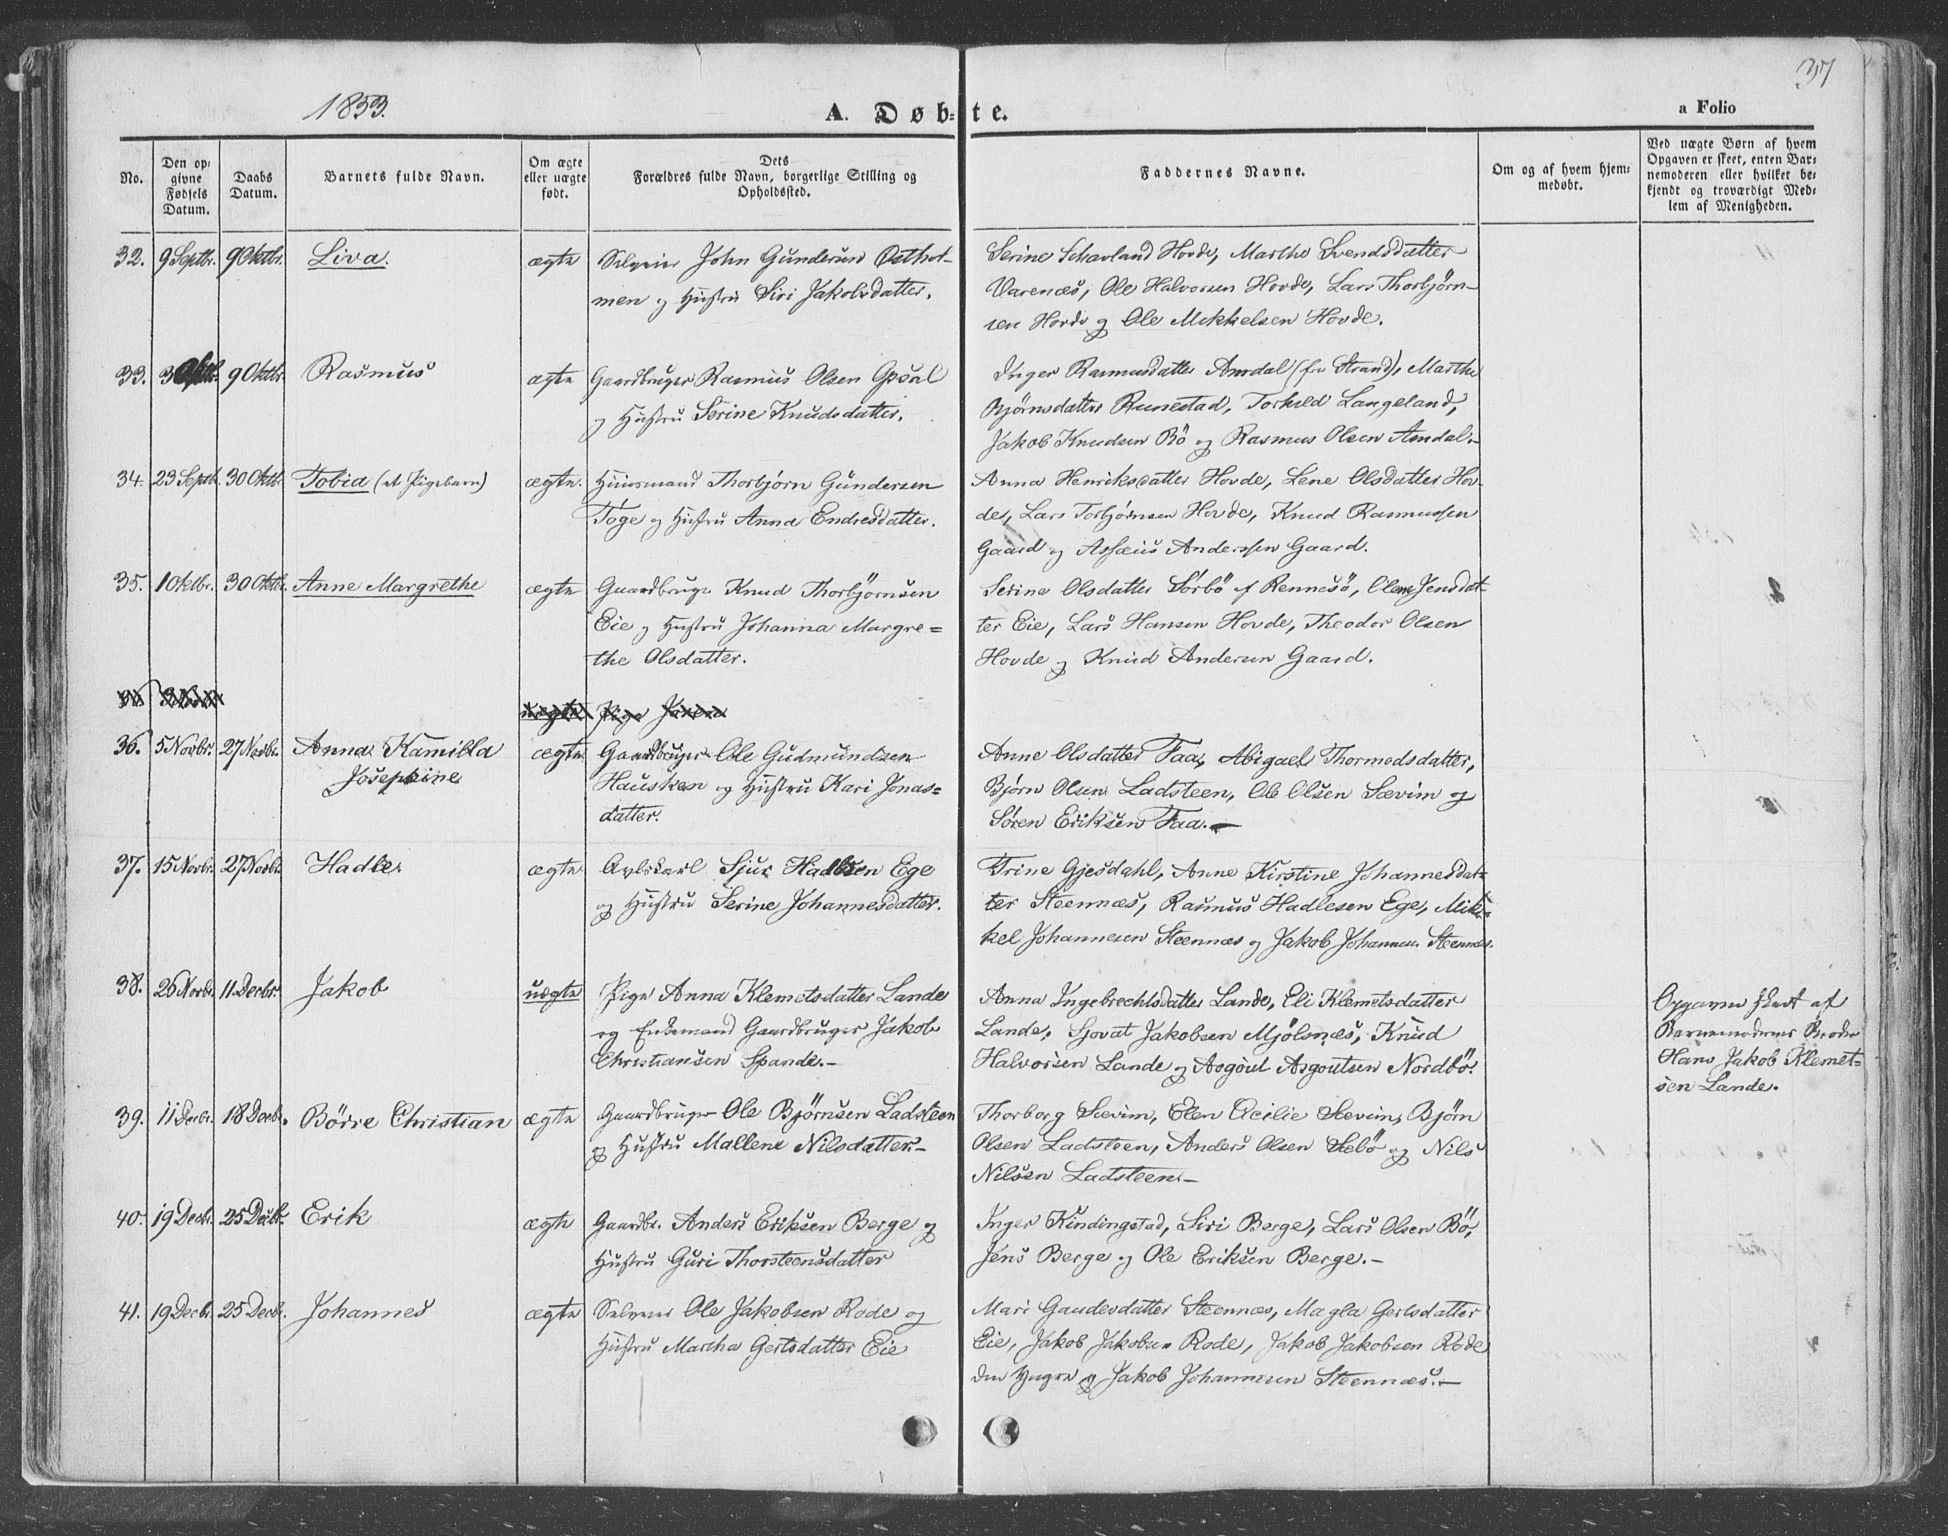 37
1853.
A. Døb=te.
a Folio
No.
Den op=
givne
Fødsels
Datum.
Daabs
Datum.
Barnets fulde Navn.
Om ægte
eller uægte
født.
Dets
Forældres fulde Navn, borgerlige Stilling og
Opholdssted.
Faddernes Navne.
Om og af hvem hjem=
medøbt.
Ved uægte Børn af hvem
Opgaven er skeet, enten Bar=
nemoderen eller hvilket be=
kjendt og troværdigt Med=
lem af Menigheden.
32. 9 Septbr. 9 Oktbr. Liva. ægte Selveier John Gundersen Østhol-
men og Hustru Siri Jakobsdatter.
Serine Schavland Hovde, Marthe Svendsdatter
Varenæs, Ole Halvorsen Hovde, Lars Thorbjørn-
sen Hovde og Ole Mikkelsen Hovde.
33. 9 Oktbr. Rasmus ægte Gaardbruger Rasmus Olsen Opsal
og Hustru Serine Knudsdatter.
Inger Rasmusdatter Amdal (fra Strand), Marthe
Bjørnsdatter Runestad, Torkild Langeland,
Jakob Knudsen Bö og Rasmus Olsen Amdal.
34. 23 Septb. 30 Oktbr. Tobia (et Pigebarn) ægte. Huusmand Thorbjørn Gundersen
Toge og Hustru Anna Endresdatter.
Anna Henriksdatter Hovde, Lene Olsdatter Hov-
de, Lars Torbjørnsen Hovde, Knud Rasmussen
Gaard og Asseus Anderssen Gaard.
35. 1 Oktbr. 30 Oktbr. Anne Margrethe ægte Gaardbruger Knud Thorbjörnsen
Eie og Hustru Johanna Margre=
the Olsdatter.
Serine Olsdatter Sörbö af Rennesö, Olene Jensdat-
ter Eie, Lars Hansen Hovde, Theodor Olsen
Hovde og Knud Andersen Gaard.
uægte Pige
36. 5 Novbr. 27 Novbr. Anna Kamilla
Josephine
ægte. Gaardbruger Ole Gudmundsen
Hausken og Hustru Kari Jonas=
datter.
Anne Olsdatter Faa, Abigael Thormodsdatter,
Björn Olsen Ladsteen, Ole Olsen Sævim og
Sören Eriksen Faa.—
37. 15 Novbr. 27 Novbr. Hadle. ægte Avlskarl Sjur Hadlesen Ege
og Hustru Serine Johannesdatter.
Trine Gjesdahl, Anne Kirstine Johannesdat-
ter Steennæs, Rasmus Hadlesen Ege, Mik-
kel Johannesen Steennæs og Jakob Johannesen Steennæs.
38. 26 Novbr. 11 Decbr. Jakob uægte Pige Anna Klemetsdatter Lande
og Enkemand Gaardbruger Jakob
Christiansen Spande.—
Anna Ingebrechtsdatter Lande, Eli Klemetsdatter
Lande, Sjovat Jakobsen Mjölsnæs, Knud
Halvorsen Lande og Asgout Asgoutsen Nordbö.
Opgaven skeet af
Barnemoderens Broder
Hans Jakob Klemet-
sen Lande.
39. 11 Decbr. 18 Decbr. Börre Christian ægte Gaardbruger Ole Björnsen Ladsteen
og Hustru Mallene Nilsdatter.—
Thorborg Sævim, Elen Cecilie Sævim, Björn
Olsen Ladsteen, Anders Olsen Sebö og Nils
Nilsen Ladsteen.—
40. 19 Decbr. 25 Decbr. Erik ægte Gaardbr. Anders Eriksen Berge og
Hustru Guri Thorsteensdatter
Inger Kindingstad, Siri Berge, Lars Olsen Bö,
Jens Berge og Ole Eriksen Berge.—
41. 19 Decbr. 25 Decbr. Johannes ægte Selveier Ole Jakobsen Rode og
Hustru Martha Gertsdatter Eie
Mari Gaudesdatter Steennæs, Magla Gertsdatter
Eie, Jakob Jakobsen Rode, Jakob Jakobsen Rode
den Yngre og Jakob Johannesen Steennæs.—